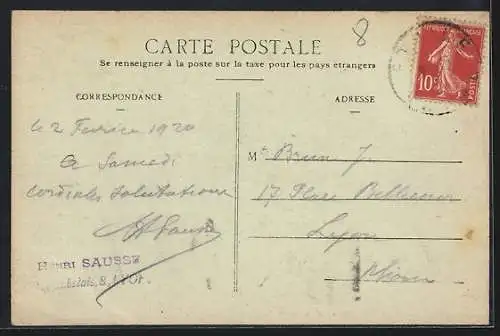 8
CARTE POSTALE
Se renseigner à la poste sur la taxe pour les pays étrangers
CORRESPONDANCE
ADRESSE
RÉPUBLIQUE FRANÇAISE
10c
POSTES
Le 2 Fevrier 1920
a Samedi
cordiales salutations
Mr Brun J.
17 Place Bellecour
Lyon
Rhône
HENRI SAUSSE
8, LYON